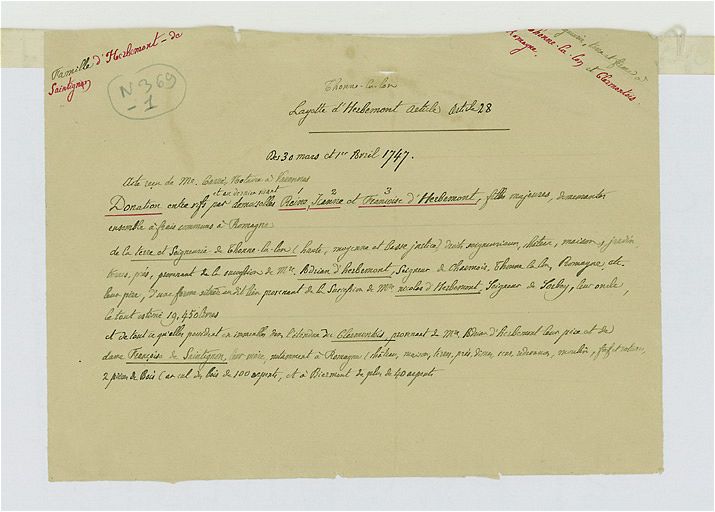 Famille d'Herbemont - de
Saintignon
N 369
- 1
Thonne-la-lon et Clermontois.
Romagne.
Thonne-la-lon
Layette d'Herbemont Article 28
Des 30 mars et 1er Avril 1747.
Acte reçu de Me. Notaire à Varennes
et au dernier vivant
2 3
Donation entre vifs par demoiselles Reine, Jeanne et Françoise d'Herbemont, filles majeures, demeurantes
ensemble à frais communs à Romagne
de la terre et Seigneurie de Thonne-la-lon (haute, moyenne et basse justice) droits seigneuriaux, château, maison, jardin,
terres, prés, provenant de la succession de Mre. Adrien d'herbemont, Seigneur de Charmois, Thonne la lon, Romagne, etc.
leur père, d'une ferme située au dit lieu provenant de la Succession de Mre nicolas d'Herbemont, Seigneur de Sorbey, leur oncle,
le tout estimé 19,450 livres
et de tout ce qu'elles possèdent en immeubles dans l'étendue du Clermontois provenant de Mre Adrien d'Herbemont leur père et de
dame Françoise de Saintignon, leur mère, notamment à Romagne (château, maison, terres, prés, moulin,
2 pièces de Bois de 100 arpents, et à de plus de 40 arpents